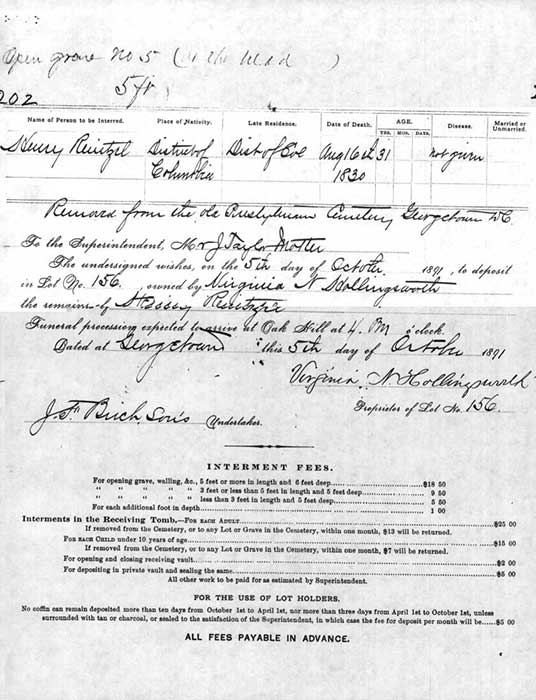 Open grave No 5 (at the head )
5 ft
202
Name of Person to be Interred. Place of Nativity. Late Residence. Date of Death. AGE. YRS. MOS. DAYS. Disease. Married or Unmarried.
Henry Reintzel District of Dist of Col Aug 16th 31 not given
Columbia 1830
Removed from the old Presbyterian Cemetery Georgetown DC
To the Superintendent, Mr J Taylor Motter
The undersigned wishes, on the 5th day of October 1891, to deposit
in Lot No. 156, owned by Virginia N Hollingsworth
the remains of Henry Reintzel
Funeral procession expected to arrive at Oak Hill at 4 PM o'clock.
Dated at Georgetown this 5th day of October 1891
Virginia N. Hollingsworth
Proprietor of Lot No. 156.
J. F. Birch, Sons Undertaker.
INTERMENT FEES.
For opening grave, walling, &c., 5 feet or more in length and 6 feet deep $18 50
" " " " " 3 feet or less than 5 feet in length and 5 feet deep 9 50
" " " " " less than 3 feet in length and 5 feet deep 5 50
For each additional foot in depth 1 00
Interments in the Receiving Tomb,—FOR EACH ADULT $25 00
If removed from the Cemetery, or to any Lot or Grave in the Cemetery, within one month, $13 will be returned.
FOR EACH CHILD under 10 years of age $15 00
If removed from the Cemetery, or to any Lot or Grave in the Cemetery, within one month, $7 will be returned.
For opening and closing receiving vault $2 00
For depositing in private vault and sealing the same $5 00
All other work to be paid for as estimated by Superintendent.
FOR THE USE OF LOT HOLDERS.
No coffin can remain deposited more than ten days from October 1st to April 1st, nor more than three days from April 1st to October 1st, unless
surrounded with tan or charcoal, or sealed to the satisfaction of the Superintendent, in which case the fee for deposit per month will be $5 00
ALL FEES PAYABLE IN ADVANCE.